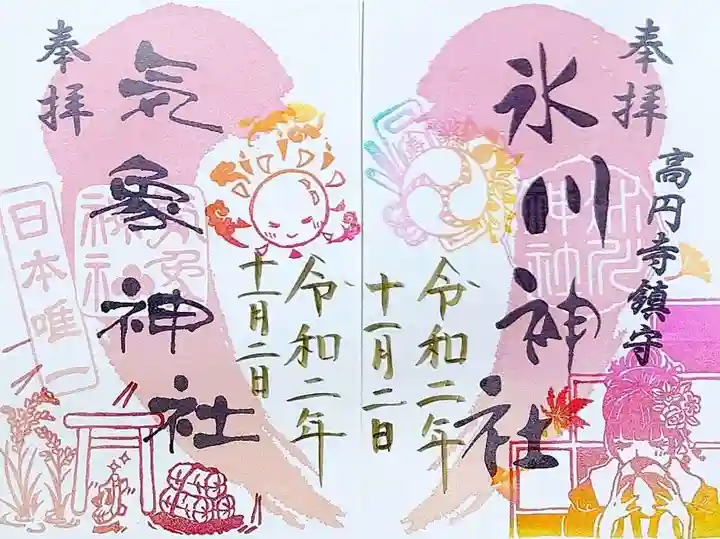 奉拝
高円寺鎮守
氷川神社
令和二年
十一月二日
奉拝
気象神社
日本唯一
令和二年
十一月二日